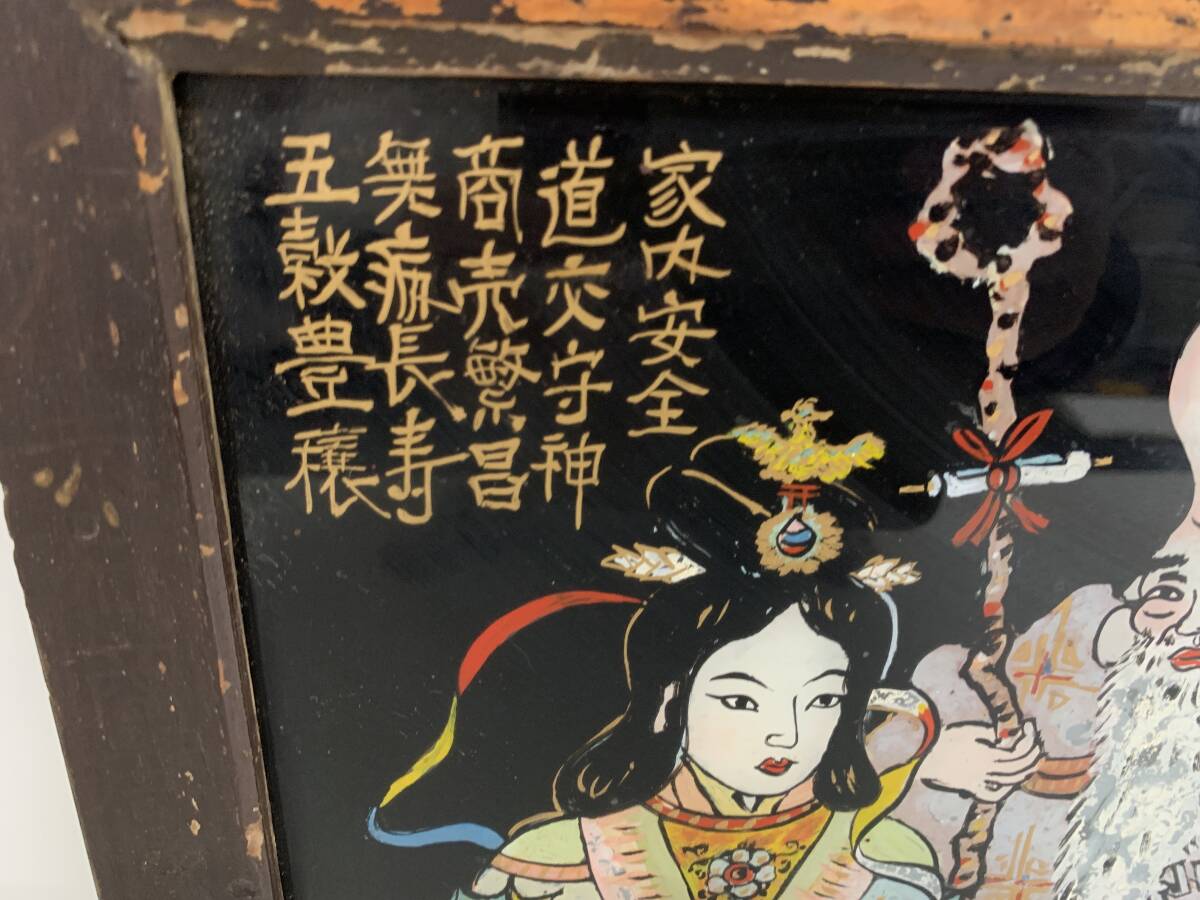 家内安全
道六守神
商売繁昌
無病長寿
五穀豊穣